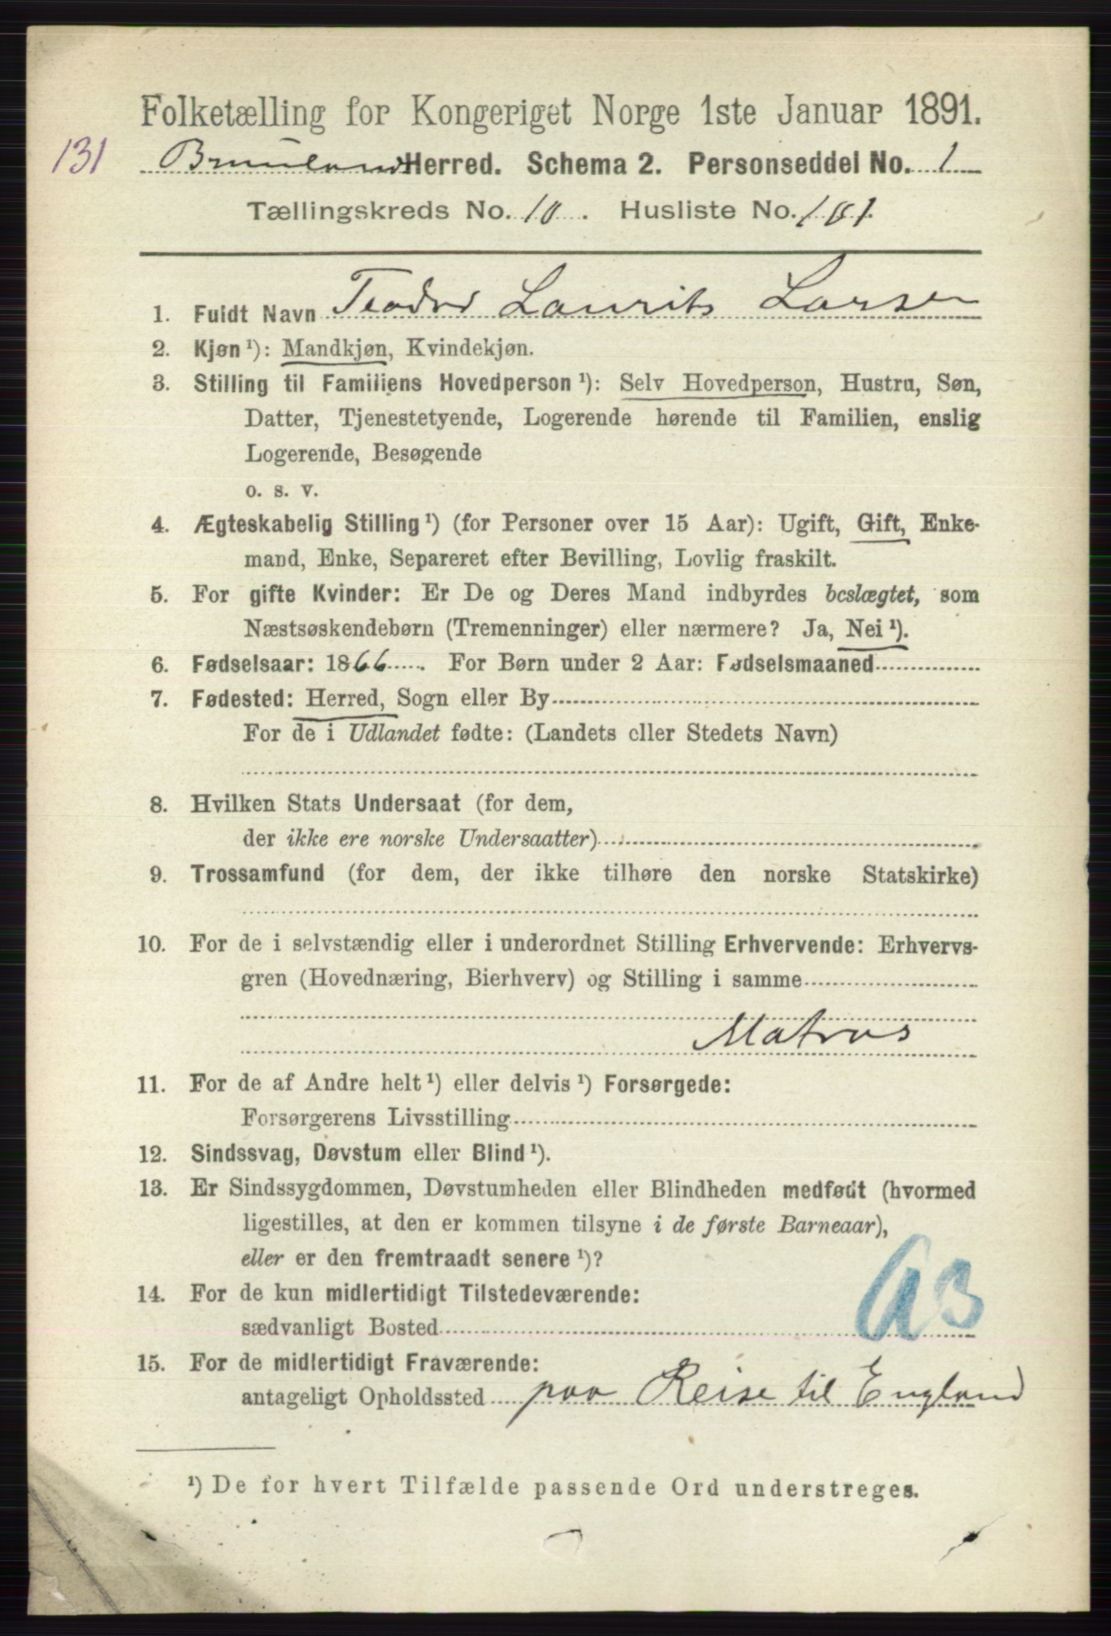 Folketælling for Kongeriget Norge 1ste Januar 1891.
131
Herred. Schema 2. Personseddel No. 1
Tællingskreds No. 10. Husliste No. 101.
1. Fuldt Navn Teodor Laurits Larsen
2. Kjøn ¹): Mandkjøn, Kvindekjøn.
3. Stilling til Familiens Hovedperson ¹): Selv Hovedperson, Hustru, Søn,
Datter, Tjenestetyende, Logerende hørende til Familien, enslig
Logerende, Besøgende
o. s. v.
4. Ægteskabelig Stilling ¹) (for Personer over 15 Aar): Ugift, Gift, Enke-
mand, Enke, Separeret efter Bevilling, Lovlig fraskilt.
5. For gifte Kvinder: Er De og Deres Mand indbyrdes beslægtet, som
Næstsøskendebørn (Tremenninger) eller nærmere? Ja, Nei ¹).
6. Fødselsaar: 1866. For Børn under 2 Aar: Fødselsmaaned
7. Fødested: Herred, Sogn eller By
For de i Udlandet fødte: (Landets eller Stedets Navn)
8. Hvilken Stats Undersaat (for dem,
der ikke ere norske Undersaatter)
9. Trossamfund (for dem, der ikke tilhøre den norske Statskirke)
10. For de i selvstændig eller i underordnet Stilling Erhvervende: Erhvervs-
gren (Hovednæring, Bierhverv) og Stilling i samme
Matros
11. For de af Andre helt ¹) eller delvis ¹) Forsørgede:
Forsørgerens Livsstilling
12. Sindssvag, Døvstum eller Blind ¹).
13. Er Sindssygdommen, Døvstumheden eller Blindheden medfødt (hvormed
ligestilles, at den er kommen tilsyne i de første Barneaar),
eller er den fremtraadt senere ¹)?
14. For de kun midlertidigt Tilstedeværende:
sædvanligt Bosted
15. For de midlertidigt Fraværende:
antageligt Opholdssted paa Reise til England
¹) De for hvert Tilfælde passende Ord understreges.